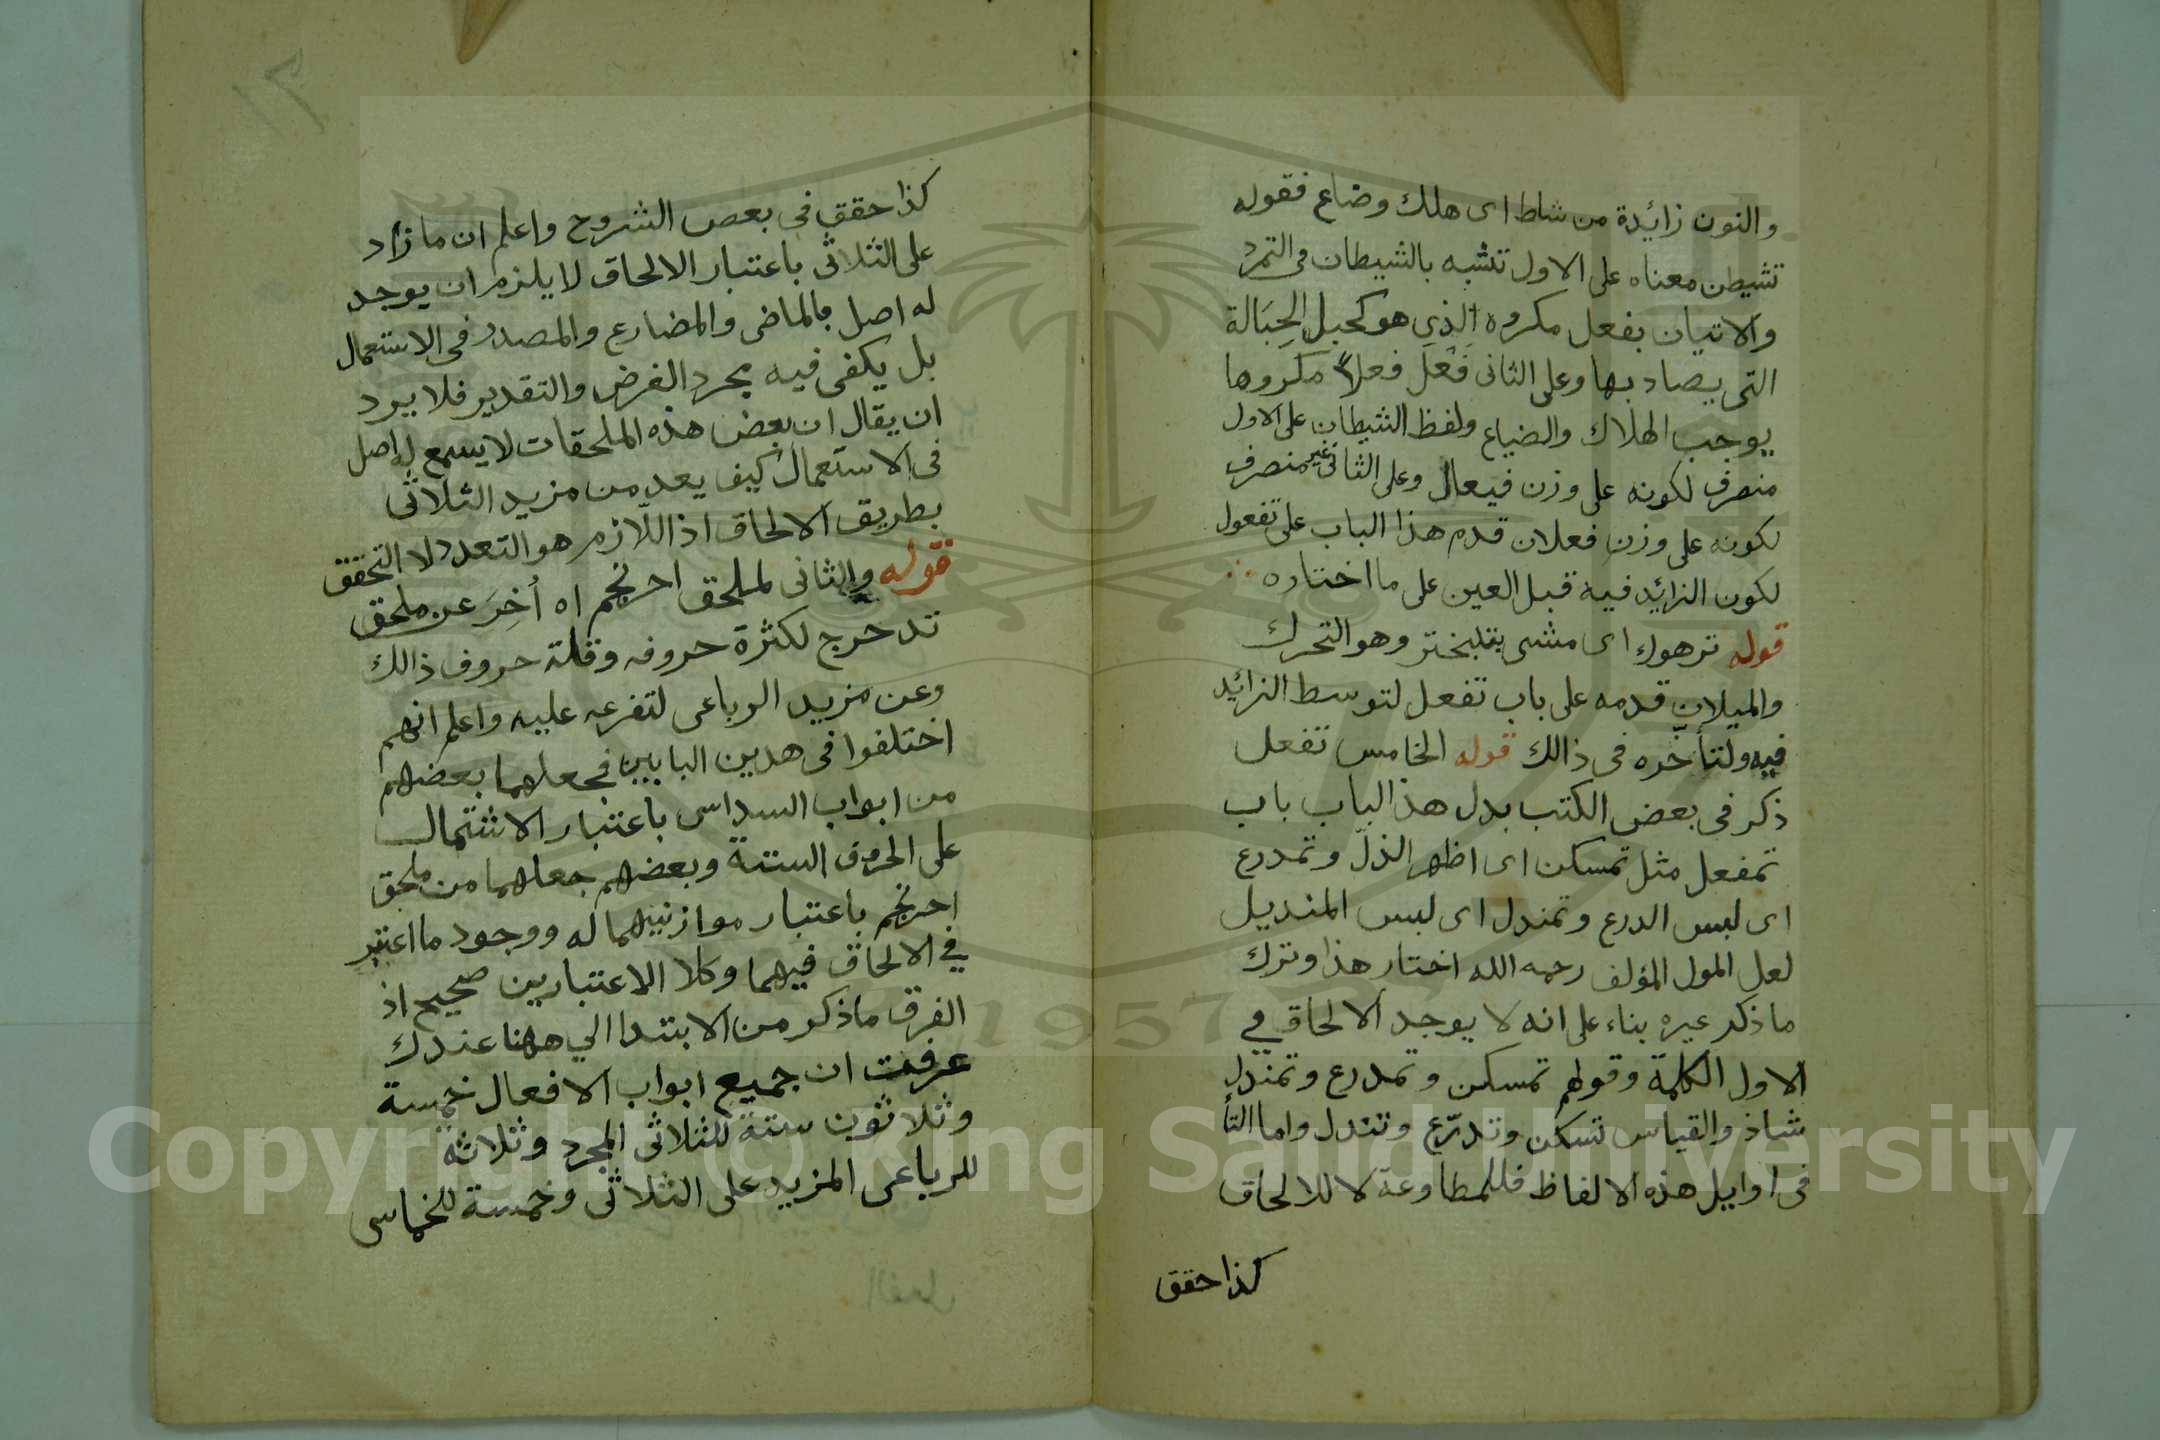 والنون زائدة من شاط اى هلك وضاع فقوله
تشيطن معناه على الاول تشبه بالشيطان فى التمرد
والاتيان بفعل مكروه الذى هو كحبل الحِبَالة
التى يصاد بها وعلى الثانى فَعَلَ فعلاً مكروها
يوجب الهلاك والضياع ولفظ الشيطان على الاول
منصرف لكونه على وزن فيعال وعلى الثانى غير منصرف
لكونه على وزن فعلان قدم هذا الباب على تفعول
لكون الزائد فيه قبل العين على ما اختاره
قوله ترهوك اى مشى بتبختر وهو التحرك
والميلان قدمه على باب تفعل لتوسط الزائد
فيه ولتأخره فى ذالك قوله الخامس تفعل
ذكر فى بعض الكتب بدل هذ الباب باب
تمفعل مثل تمسكن اى اظهر الذلّ وتمدرع
اى لبس الدرع وتمندل اى لبس المنديل
لعل المول المؤلف رحمه الله اختار هذا وترك
ما ذكر غيره بناء على انه لا يوجد الالحاق في
الاول الكلمة وقولهم تمسكن وتمدرع وتمندل
شاذ والقياس تسكن وتدرّع وتندل واما التأ
فى اوايل هذه الالفاظ فللمطاوعة لا للالحاق
كذا حقق
كذا حقق في بعض الشروح واعلم ان ما زاد
على الثلاثى باعتبار الالحاق لا يلزم ان يوجد
له اصل بالماضى والمضارع والمصدر فى الاستعمال
بل يكفى فيه مجرد الفرض والتقدير فلا يرد
ان يقال ان بعض هذه الملحقات لا يسمع له اصل
فى الاستعمال كيف يعد من مزيد الثلاثى
بطريق الالحاق اذ اللّازم هو التعدد لا التحقق
قوله والثانى لملحق احرنجم اه أُخِرَ عن ملحق
تدحرج لكثرة حروفه وقلة حروف ذالك
وعن مزيد الرباعى لتفرعه عليه واعلم انهم
اختلفوا فى هدين البابين فجعلهما بعضهم
من ابواب السداسى باعتبار الاشتمال
على الحروف الستة وبعضهم جعلهما من ملحق
احرنجم باعتبار موازنتهما له ووجود ما اعتبر
في الالحاق فيهما وكلا الاعتبارين صحيح اذ
الفرق ماذكر من الابتدا الي ههنا عندك
عرفت ان جميع ابواب الافعال خمسة
وثلاثون ستة للثلاثى المجرد وثلاثة
للرباعى المزيد على الثلاثى وخمسة للخماسى
Copyright © King Saud University
1957